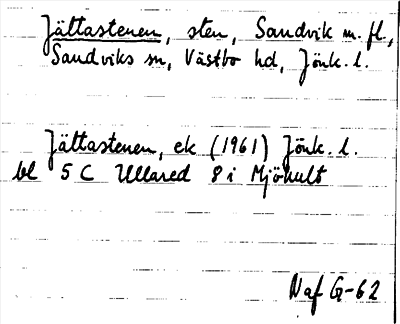 Jättastenen, sten, Sandvik m. fl.,
Sandviks sn, Västbo hd, Jönk. l.
Jättastenen, ek (1961) Jönk. l.
bl 5 C Ullared 8 i Mjöhult
Naf G-62